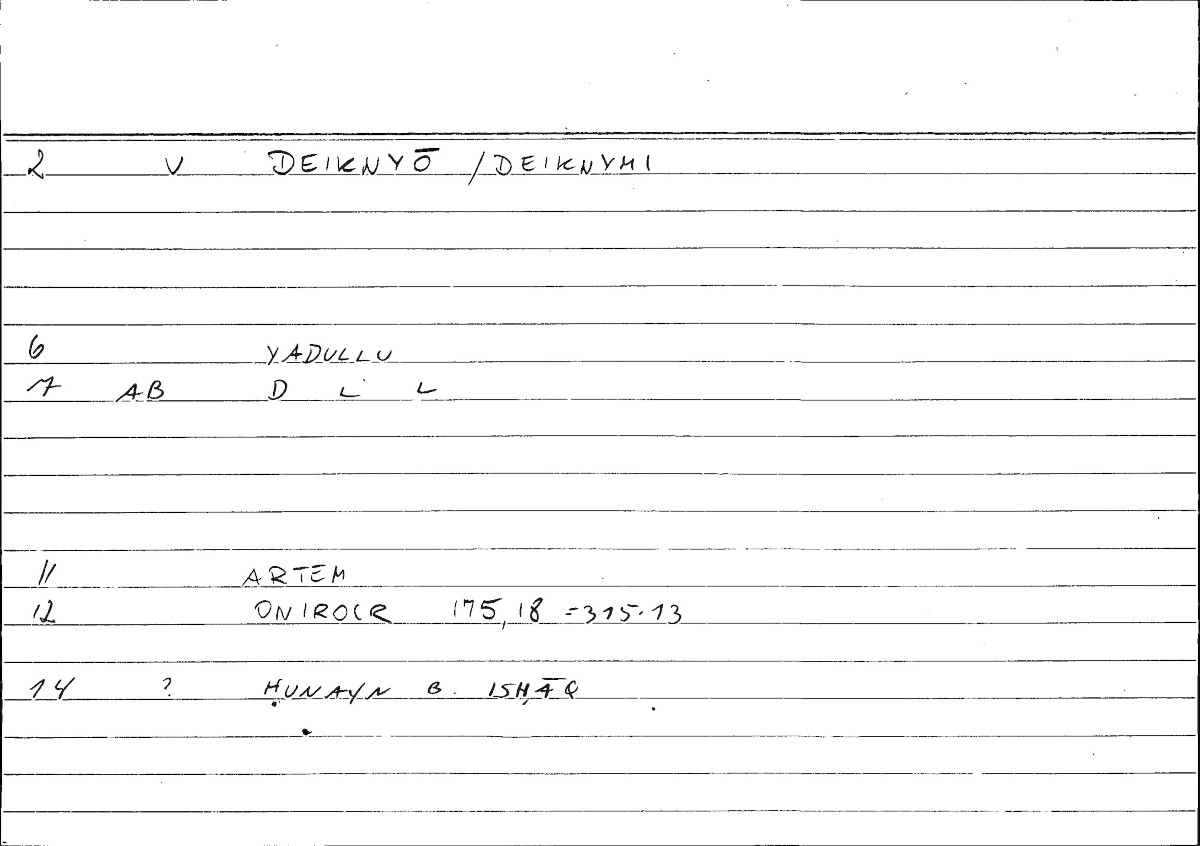 2 V DEIKNYŌ /DEIKNYMI
6 YADULLU
7 AB D L L
11 ARTEM
12 ONIROCR 175,18 =315.13
14 ? ḤUNAYN B. ISḤĀQ